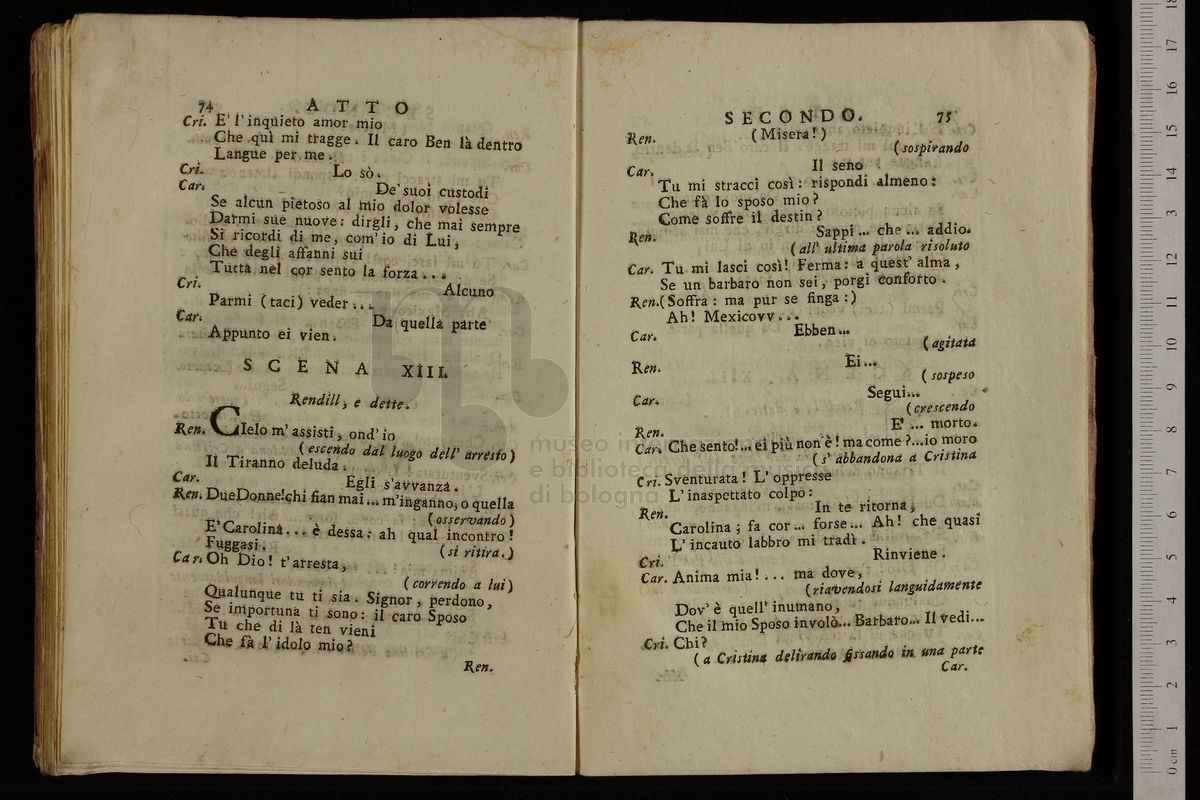 74 ATTO
Cri. E' l'inquieto amor mio
Che quì mi tragge. Il caro Ben là dentro
Langue per me.
Cri. Lo sò.
Car. De' suoi custodi
Se alcun pietoso al mio dolor volesse
Darmi sue nuove: dirgli, che mai sempre
Si ricordi di me, com' io di Lui,
Che degli affanni sui
Tutta nel cor sento la forza...
Cri. Alcuno
Parmi (taci) veder...
Car. Da quella parte
Appunto ei vien.
SCENA XIII.
Rendill, e dette.
Ren. CIelo m' assisti, ond' io
(escendo dal luogo dell' arresto)
Il Tiranno deluda.
Car. Egli s'avvanza.
Ren. Due Donne! chi fian mai... m'inganno, o quella
(osservando)
E' Carolina... è dessa: ah qual incontro!
Fuggasi. (si ritira.)
Car. Oh Dio! t'arresta,
(correndo a lui)
Qualunque tu ti sia. Signor, perdono,
Se importuna ti sono: il caro Sposo
Tu che di là ten vieni
Che fà l' idolo mio?
Ren.
SECONDO. 75
Ren. (Misera!)
(sospirando
Car. Il seno
Tu mi stracci così: rispondi almeno:
Che fà lo sposo mio?
Come soffre il destin?
Ren. Sappi... che... addio.
(all' ultima parola risoluto
Car. Tu mi lasci così! Ferma: a quest' alma,
Se un barbaro non sei, porgi conforto.
Ren. (Soffra: ma pur se finga:)
Ah! Mexicovv...
Car. Ebben...
(agitata
Ren. Ei...
(sospeso
Car. Segui...
(crescendo
Ren. E' ... morto.
Car. Che sento!... ei più non è! ma come?...io moro
(s' abbandona a Cristina
Cri. Sventurata! L' oppresse
L' inaspettato colpo:
Ren. In te ritorna,
Carolina; fa cor... forse... Ah! che quasi
L' incauto labbro mi tradì.
Cri. Rinviene.
Car. Anima mia!... ma dove,
(riavendosi languidamente
Dov' è quell' inumano,
Che il mio Sposo involò... Barbaro... Il vedi...
Cri. Chi?
(a Cristina delirando fissando in una parte
Car.
museo in
e biblioteca della musica
di bologna
0 cm 1 2 3 4 5 6 7 8 9 10 11 12 13 14 15 16 17 18